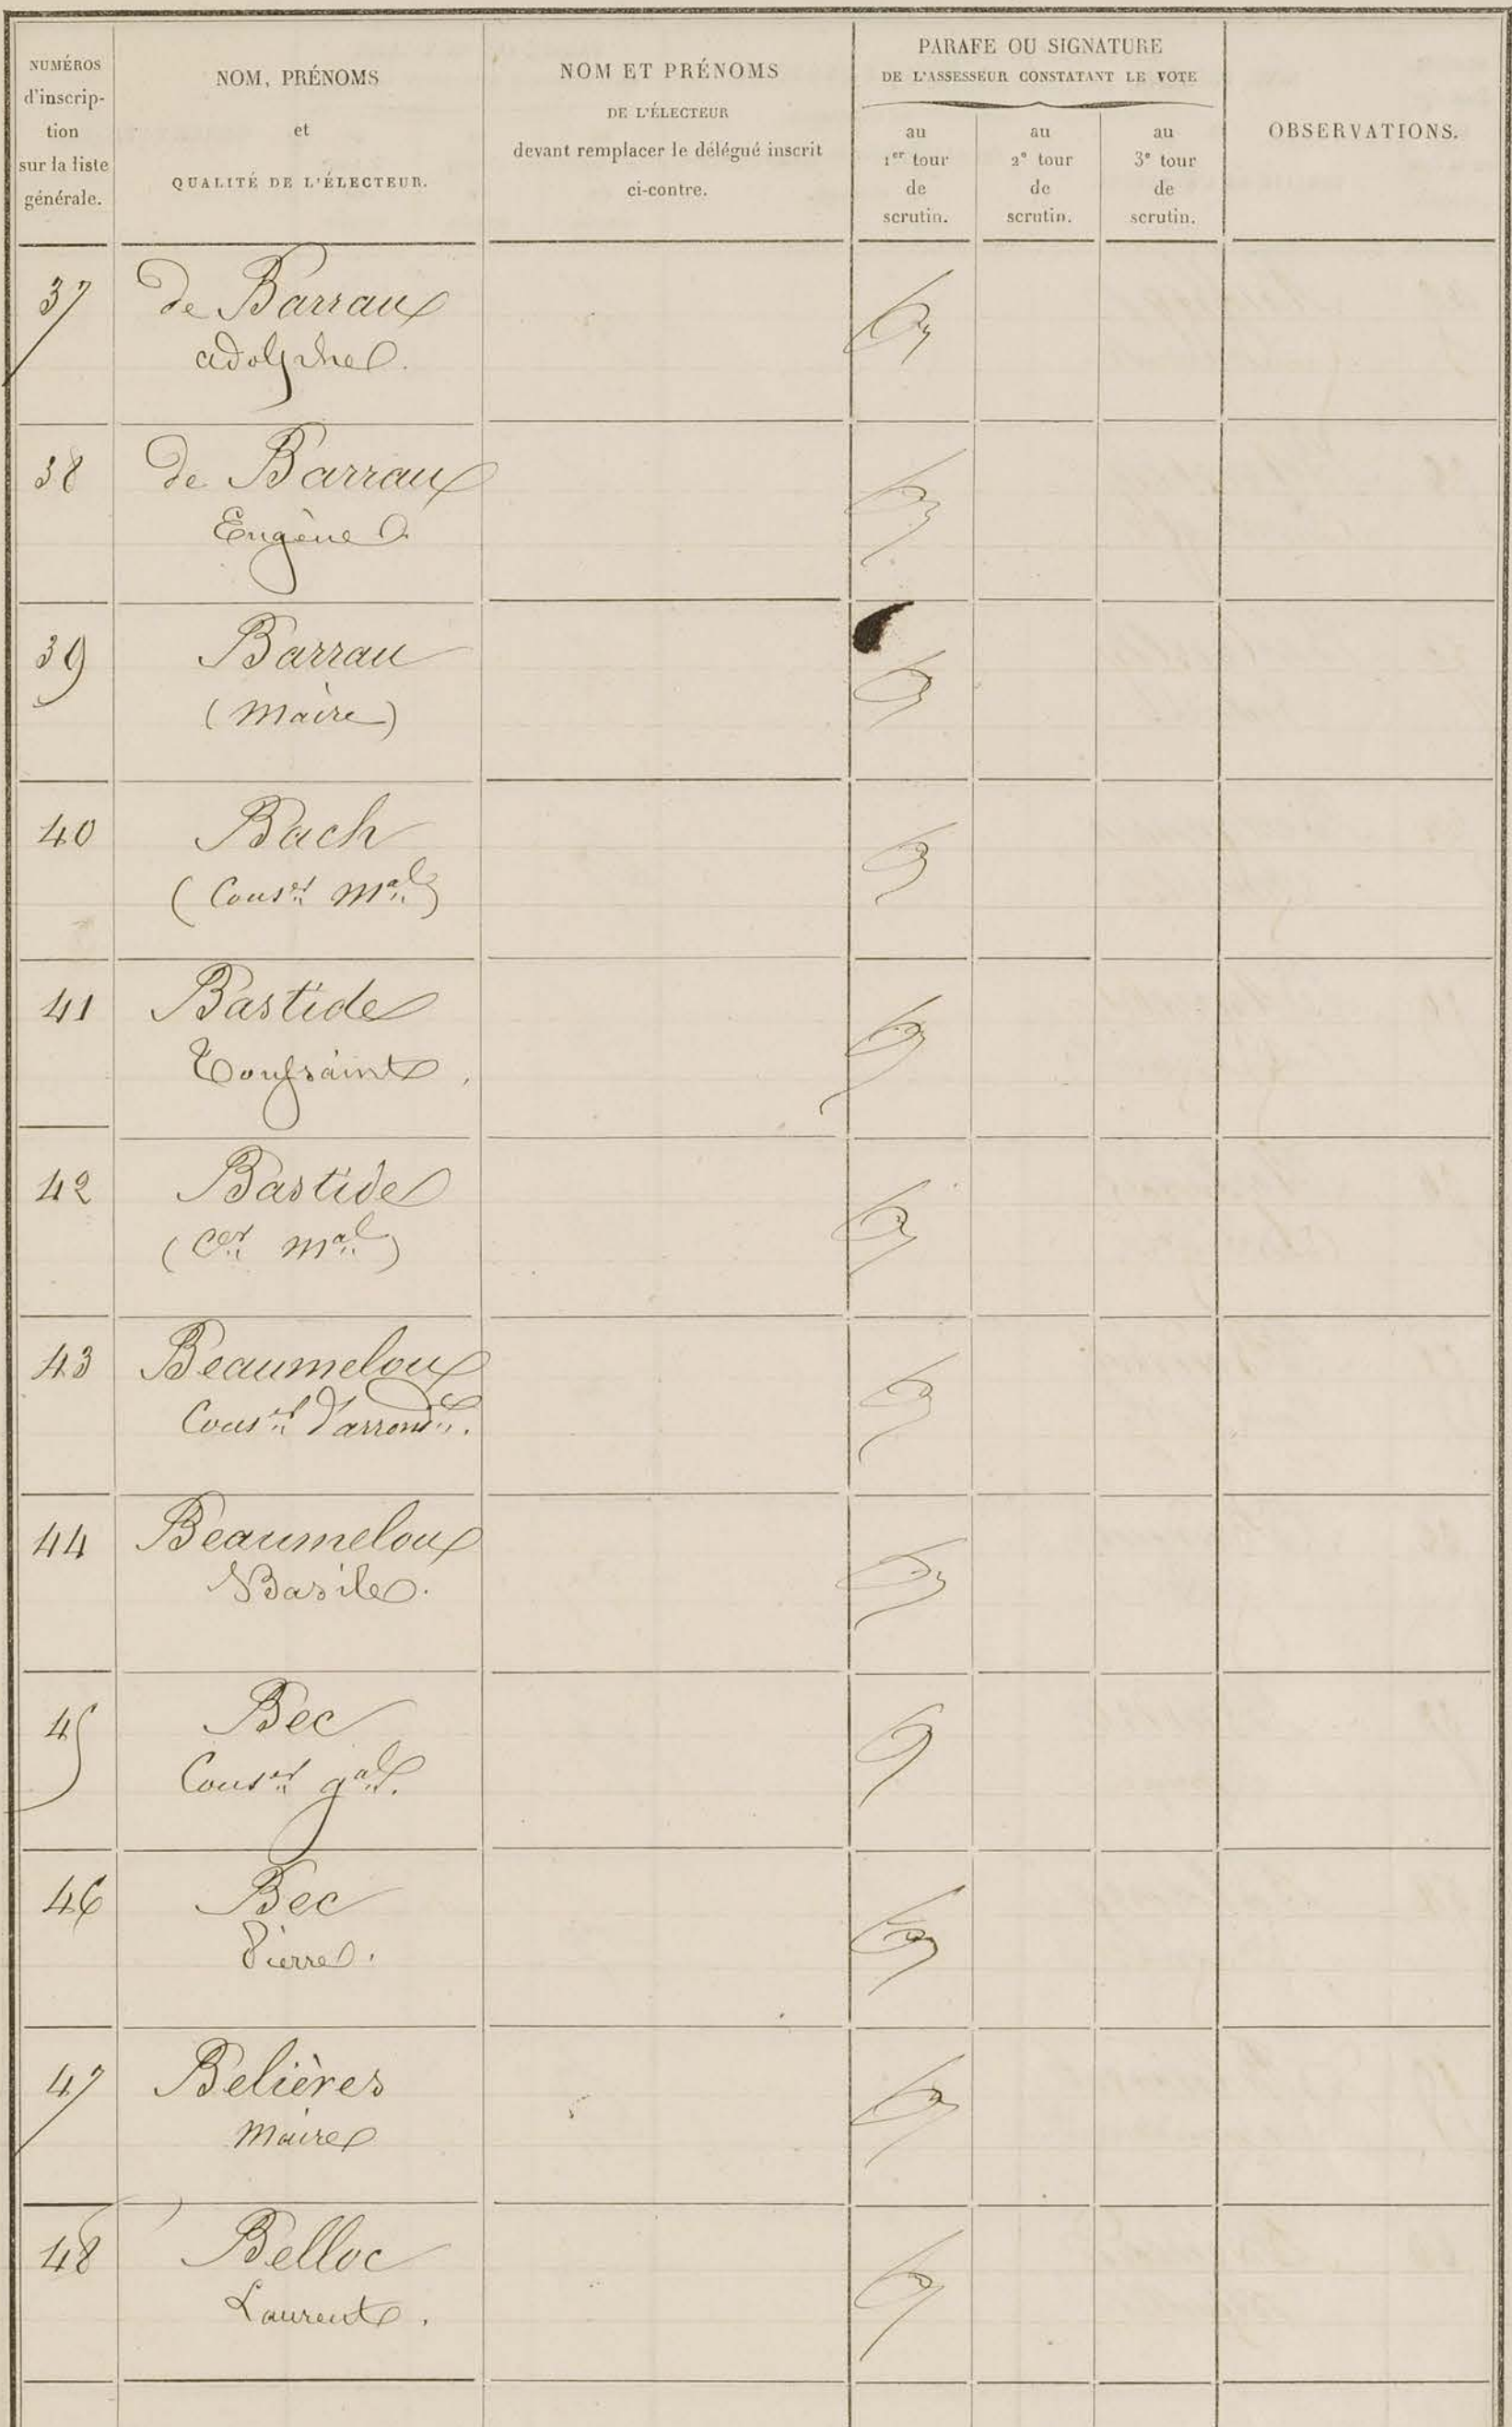 NUMÉROS
d'inscrip-
tion
sur la liste
générale.
NOM, PRÉNOMS
et
QUALITÉ DE L'ÉLECTEUR.
NOM ET PRÉNOMS
DE L'ÉLECTEUR
devant remplacer le délégué inscrit
ci-contre.
PARAFE OU SIGNATURE
DE L'ASSESSEUR CONSTATANT LE VOTE
au
1er tour
de
scrutin.
au
2e tour
de
scrutin.
au
3e tour
de
scrutin.
OBSERVATIONS.
37 de Barrau
adolphe.
38 de Barrau
Eugène
39 Barrau
(Maire)
40 Bach
(Conser Mal)
41 Bastide
Toussaint
42 Bastide
(Cer Mal)
43 Beaumelou
Conser d'arront.
44 Beaumelou
Basile.
45 Bec
Conser gal.
46 Bec
Pierre.
47 Belières
Maire
48 Belloc
Laurent.